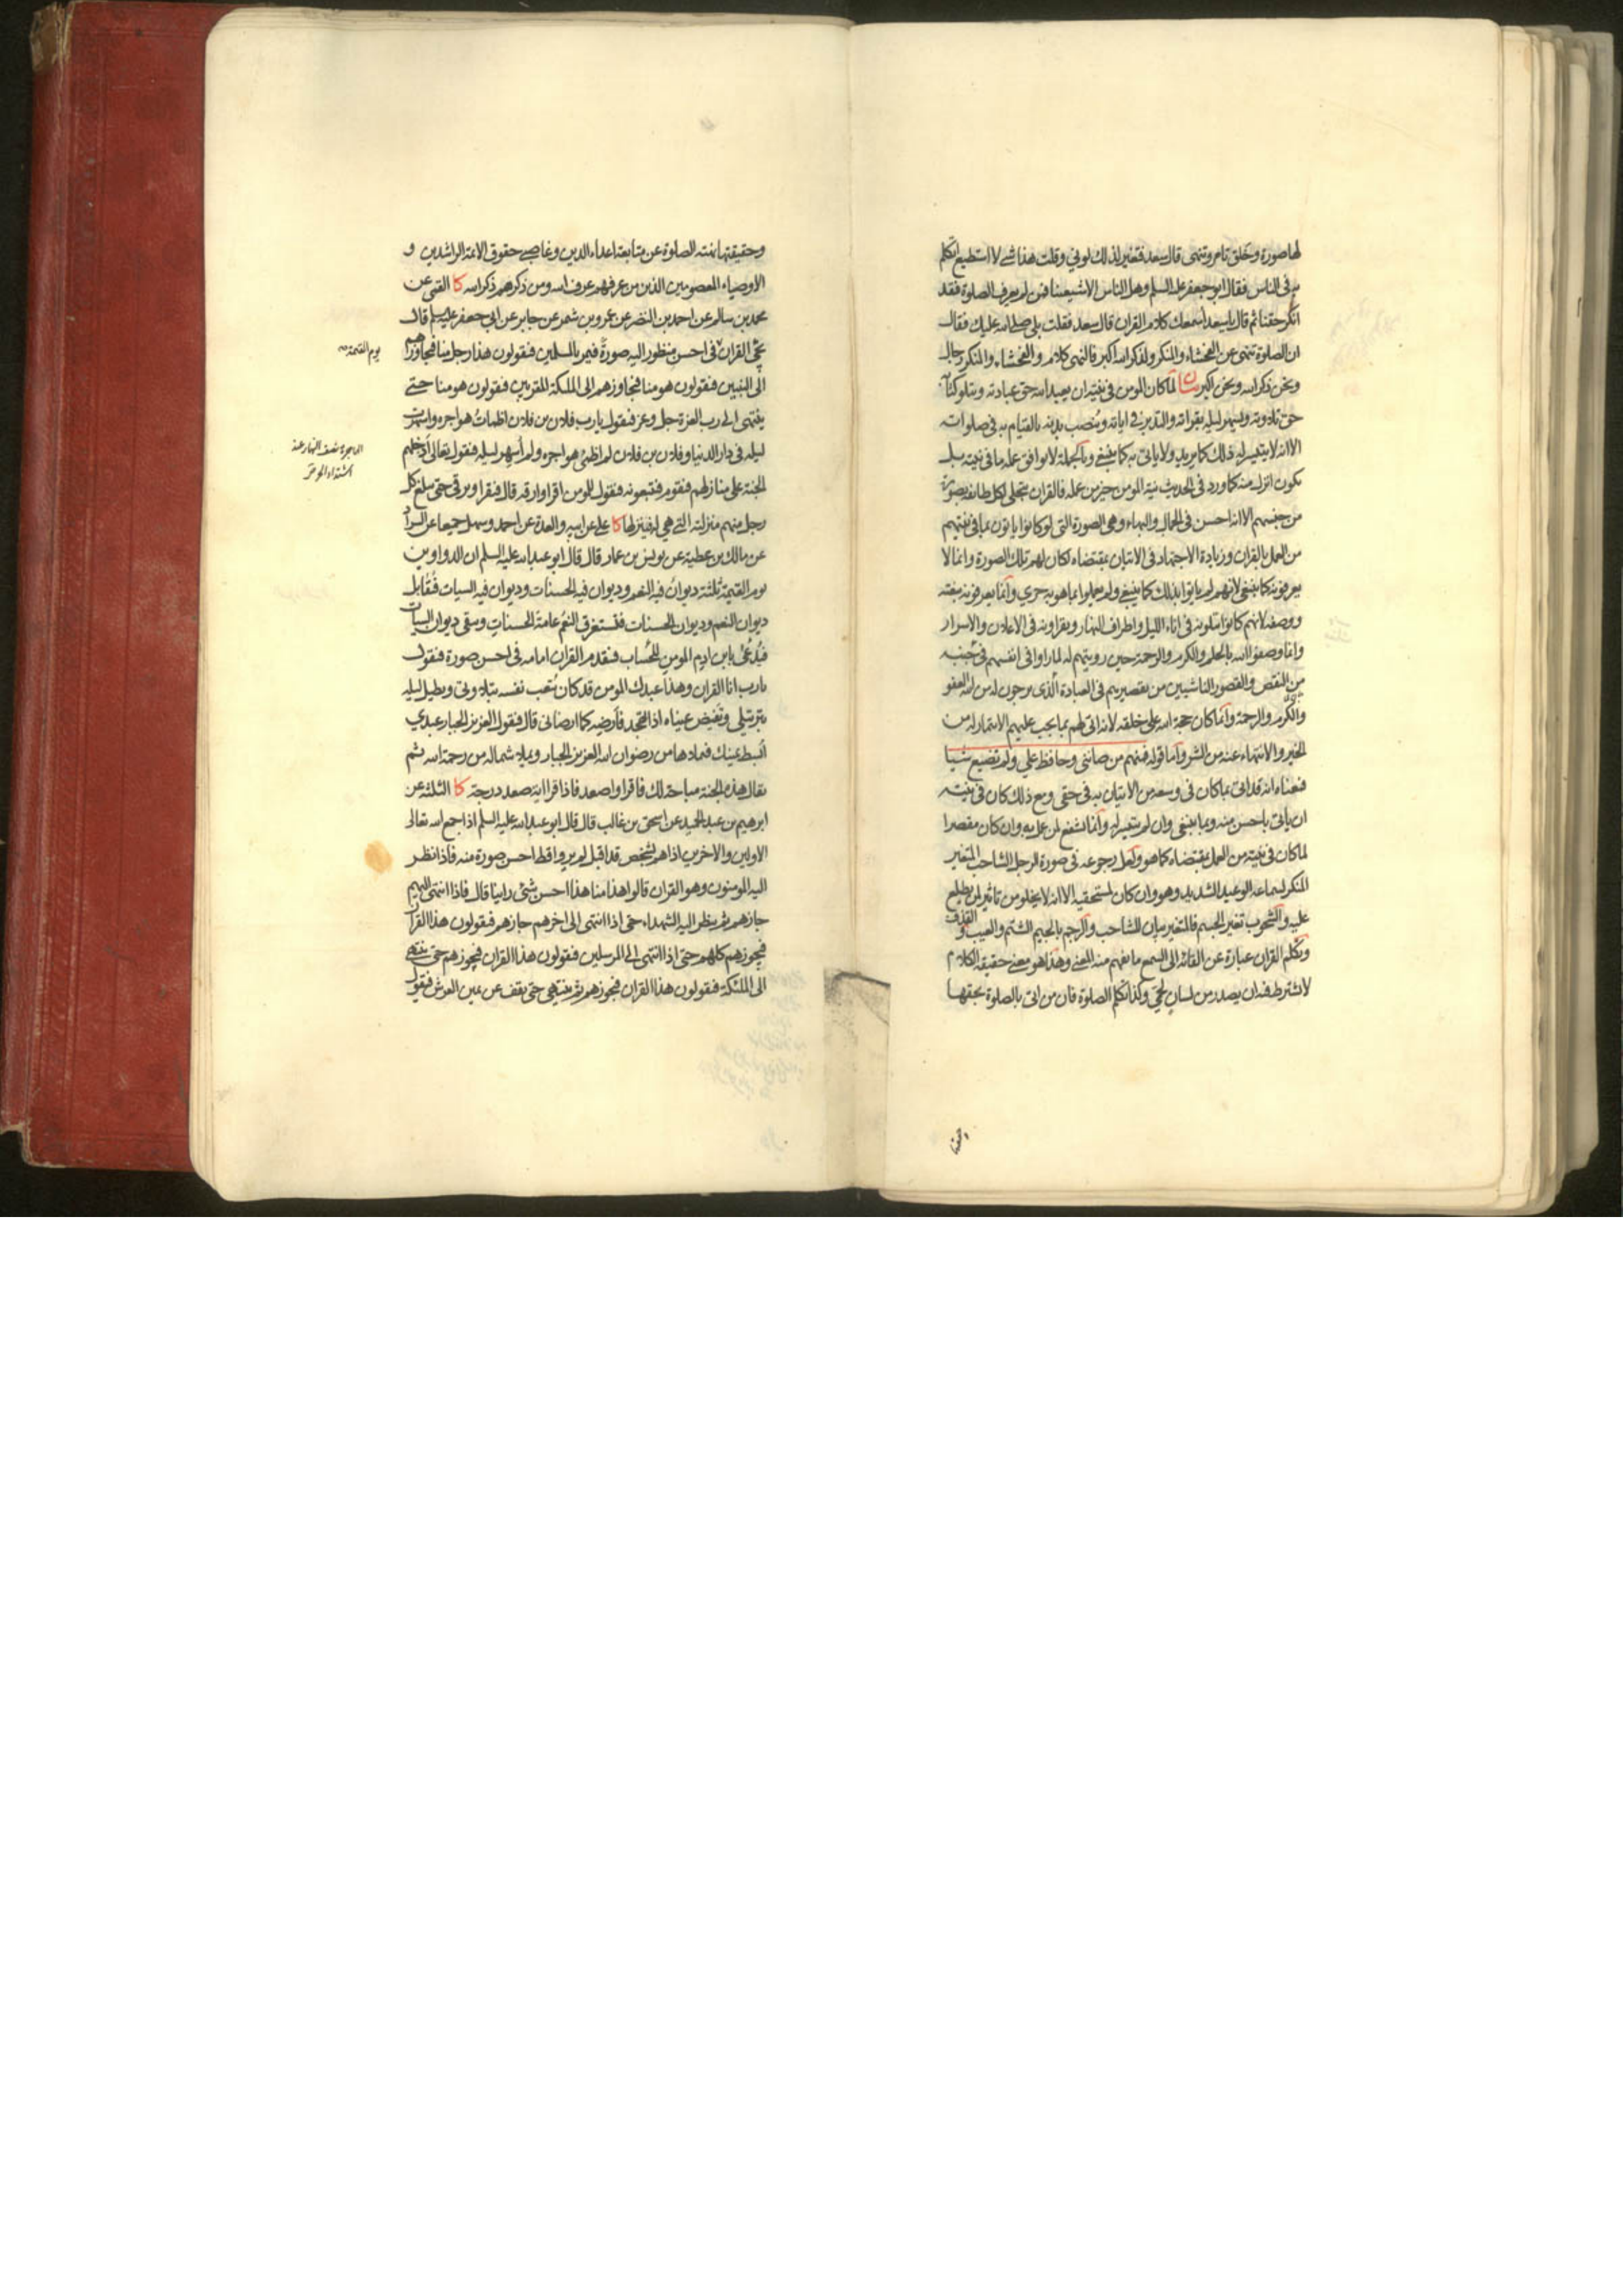 لها صورة وخلق تامر وتنهى قال سعد فتغير لذلك لوني وقلت هذا شئ لا استطيع اتكلم
به في الناس فقال ابو جعفر عليه السلم وهل الناس الا شيعتنا فمن لم يعرف الصلوة فقد
انكر حقنا ثم قال يا سعد اسمعك كلام القران قال سعد فقلت بلى صلى الله عليك فقال
ان الصلوة تنهى عن الفحشاء والمنكر ولذكر الله اكبر فالنهى كلام والفحشاء والمنكر رجال
ونحن ذكر الله ونحن اكبر بيان لما كان المومن في نيته ان يعبد الله حق عبادته ويتلو كتابه
حق تلاوته ويسهر ليله بقراته والتدبر في اياته وينصب بدنه بالقيام به في صلواته
الا انه لا يتيسر له ذلك كما يريد ولا ياتي به كما ينبغي وبالجملة لا يوافق عمله ما في نيته بل
يكون انزل منه كما ورد في الحديث نية المومن خير من عمله فالقران يتجلى لكل طائفة بصورة
من جنسهم الا انه احسن في الجمال والبهاء وهي الصورة التي لو كانوا ياتون بما في نيتهم
من العمل بالقران وزيادة الاجتهاد في الاتيان بمقتضاه لكان لهم تلك الصورة وانما لا
يعرفونه كما ينبغي لانهم لم ياتوا بذلك كما ينبغي ولم يعملوا بما هو به حري وانما يعرفونه بنعته
ووصفه لانهم كانوا يتلونه في اناء الليل واطراف النهار ويقراونه في الاعلان والاسرار
وانما وصفوا الله بالحلم والكرم والرحمة حين رويتهم له لما راوا في انفسهم في جنبه
من النقص والقصور الناشيين من تقصيرهم في العبادة الذي يرجون له من الله العفو
والكرم والرحمة وانما كان حجة الله على خلقه لانه اتى لهم بما يجب عليهم الايتمار له من
الخير والانتهاء عنه من الشر واما قوله فمنهم من صانني وحافظ علي ولم يضيع شيا
فمعناه انه قد اتى بما كان في وسعه من الاتيان به في حقي ومع ذلك كان في نيته
ان ياتي باحسن منه وبما ينبغي وان لم يتيسر له وانما تشفع لمن عمل به وان كان مقصرا
لما كان في نيته من العمل بمقتضاه كما هو ولعل رجوعه في صورة الرجل الشاحب المتغير
المنكر لسماعه الوعيد الشديد وهو وان كان لمستحقيه الا انه لا يخلو من تاثير لمن يطلع
عليه والشحوب تغير الجسم فالمتغير بيان للشاحب والرجم بالجيم الشتم والعيب والقذف
وتكلم القران عبارة عن القائه الى السمع ما يفهم منه المعنى وهذا هو معنى حقيقة الكلام
لا يشترط فيه ان يصدر من لسان لحمي وكذا تكلم الصلوة فان من اتى بالصلوة بحقها
وحقيقتها نهته الصلوة عن متابعة اعداء الدين وغاصبي حقوق الائمة الراشدين و
الاوصياء المعصومين الذين من عرفهم عرف الله ومن ذكرهم ذكر الله كا القمي عن
محمد بن سالم عن احمد بن النضر عن عمرو بن شمر عن جابر عن ابي جعفر عليه السلم قال
يجئ القران في احسن منظور اليه صورة فيمر بالمسلمين فيقولون هذا رجل منا فيجاوزهم
يوم القيمة صح
الى النبيين فيقولون هو منا فيجاوزهم الى الملئكة المقربين فيقولون هو منا حتى
ينتهى الى رب العزة جل وعز فيقول يا رب فلان بن فلان اظمات هواجره واسهرت
ليله في دار الدنيا وفلان بن فلان لم اظمئ هواجره ولم أسهر ليله فيقول تعالى أدخلهم
الهاجرة نصف النهار عند
اشتداد الحر
الجنة على منازلهم فيقوم فيتبعونه فيقول للمومن اقرا وارقه قال فيقرا ويرقى حتى يبلغ كل
رجل منهم منزلته التي هي له فينزلها كا علي عن ابيه والعدة عن احمد وسهل جميعا عن السراد
عن مالك بن عطية عن يونس بن عمار قال قال ابو عبد الله عليه السلم ان الدواوين
يوم القيمة ثلثة ديوان فيه النعم وديوان فيه الحسنات وديوان فيه السيات فيقابل
ديوان النعم وديوان الحسنات فتستغرق النعم عامة الحسنات ويبقى ديوان السيات
فيدعى بابن ادم المومن للحساب فيتقدم القران امامه في احسن صورة فيقول
يا رب انا القران وهذا عبدك المومن قد كان يتعب نفسه بتلاوتي ويطيل ليله
بترتيلي وتفيض عيناه اذا تهجد فأرضه كما ارضاني قال فيقول العزيز الجبار عبدي
ابسط يمينك فيملاها من رضوان الله العزيز الجبار ويملا شماله من رحمة الله ثم
يقال هذه الجنة مباحة لك فاقرا واصعد فاذا قرا اية صعد درجة كا الثلثة عن
ابرهيم بن عبد الحميد عن اسحق بن غالب قال قال ابو عبد الله عليه السلم اذا جمع الله تعالى
الاولين والاخرين اذا هم لشخص قد اقبل لم يروا قط احسن صورة منه فاذا نظر
اليه المومنون وهو القران قالوا هذا منا هذا احسن شئ راينا قال فاذا انتهى اليهم
جازهم ثم ينظر اليه الشهداء حتى اذا انتهى الى اخرهم جازهم فيقولون هذا القران
فيجوزهم كلهم حتى اذا انتهى الى المرسلين فيقولون هذا القران فيجوزهم حتى ينتهى
الى الملئكة فيقولون هذا القران فيجوزهم ثم ينتهى حتى يقف عن يمين العرش فيقول